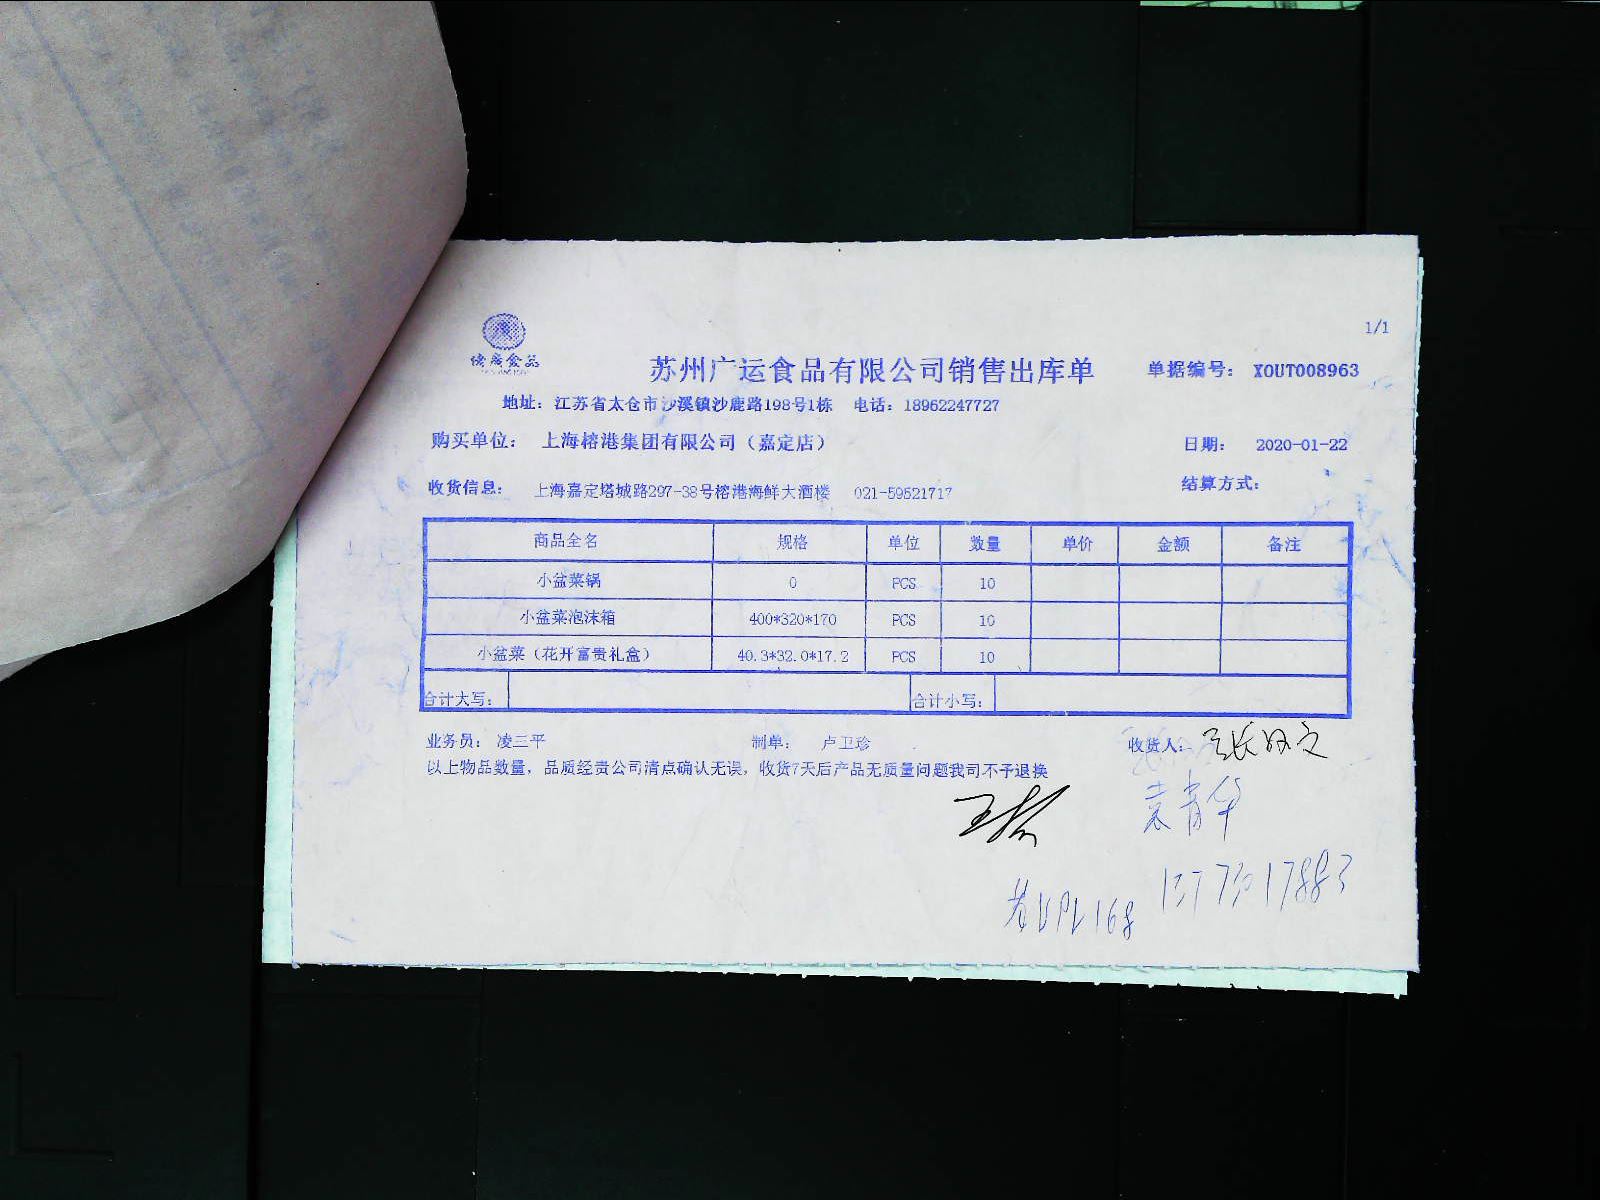 1/1
食品
苏州广运食品有限公司销售出库单 单据编号: XOUT008963
地址: 江苏省太仓市沙溪镇沙鹿路198号1栋 电话: 18962247727
购买单位: 上海榕港集团有限公司（嘉定店） 日期: 2020-01-22
收货信息: 上海嘉定塔城路297-38号榕港海鲜大酒楼 021-59521717 结算方式:
商品全名 规格 单位 数量 单价 金额 备注
小盆菜锅 0 PCS 10
小盆菜泡沫箱 400*320*170 PCS 10
小盆菜（花开富贵礼盒） 40.3*32.0*17.2 PCS 10
合计大写: 合计小写:
业务员: 凌三平 制单: 卢卫珍 收货人:
以上物品数量, 品质经贵公司清点确认无误, 收货7天后产品无质量问题我司不予退换
袁青华